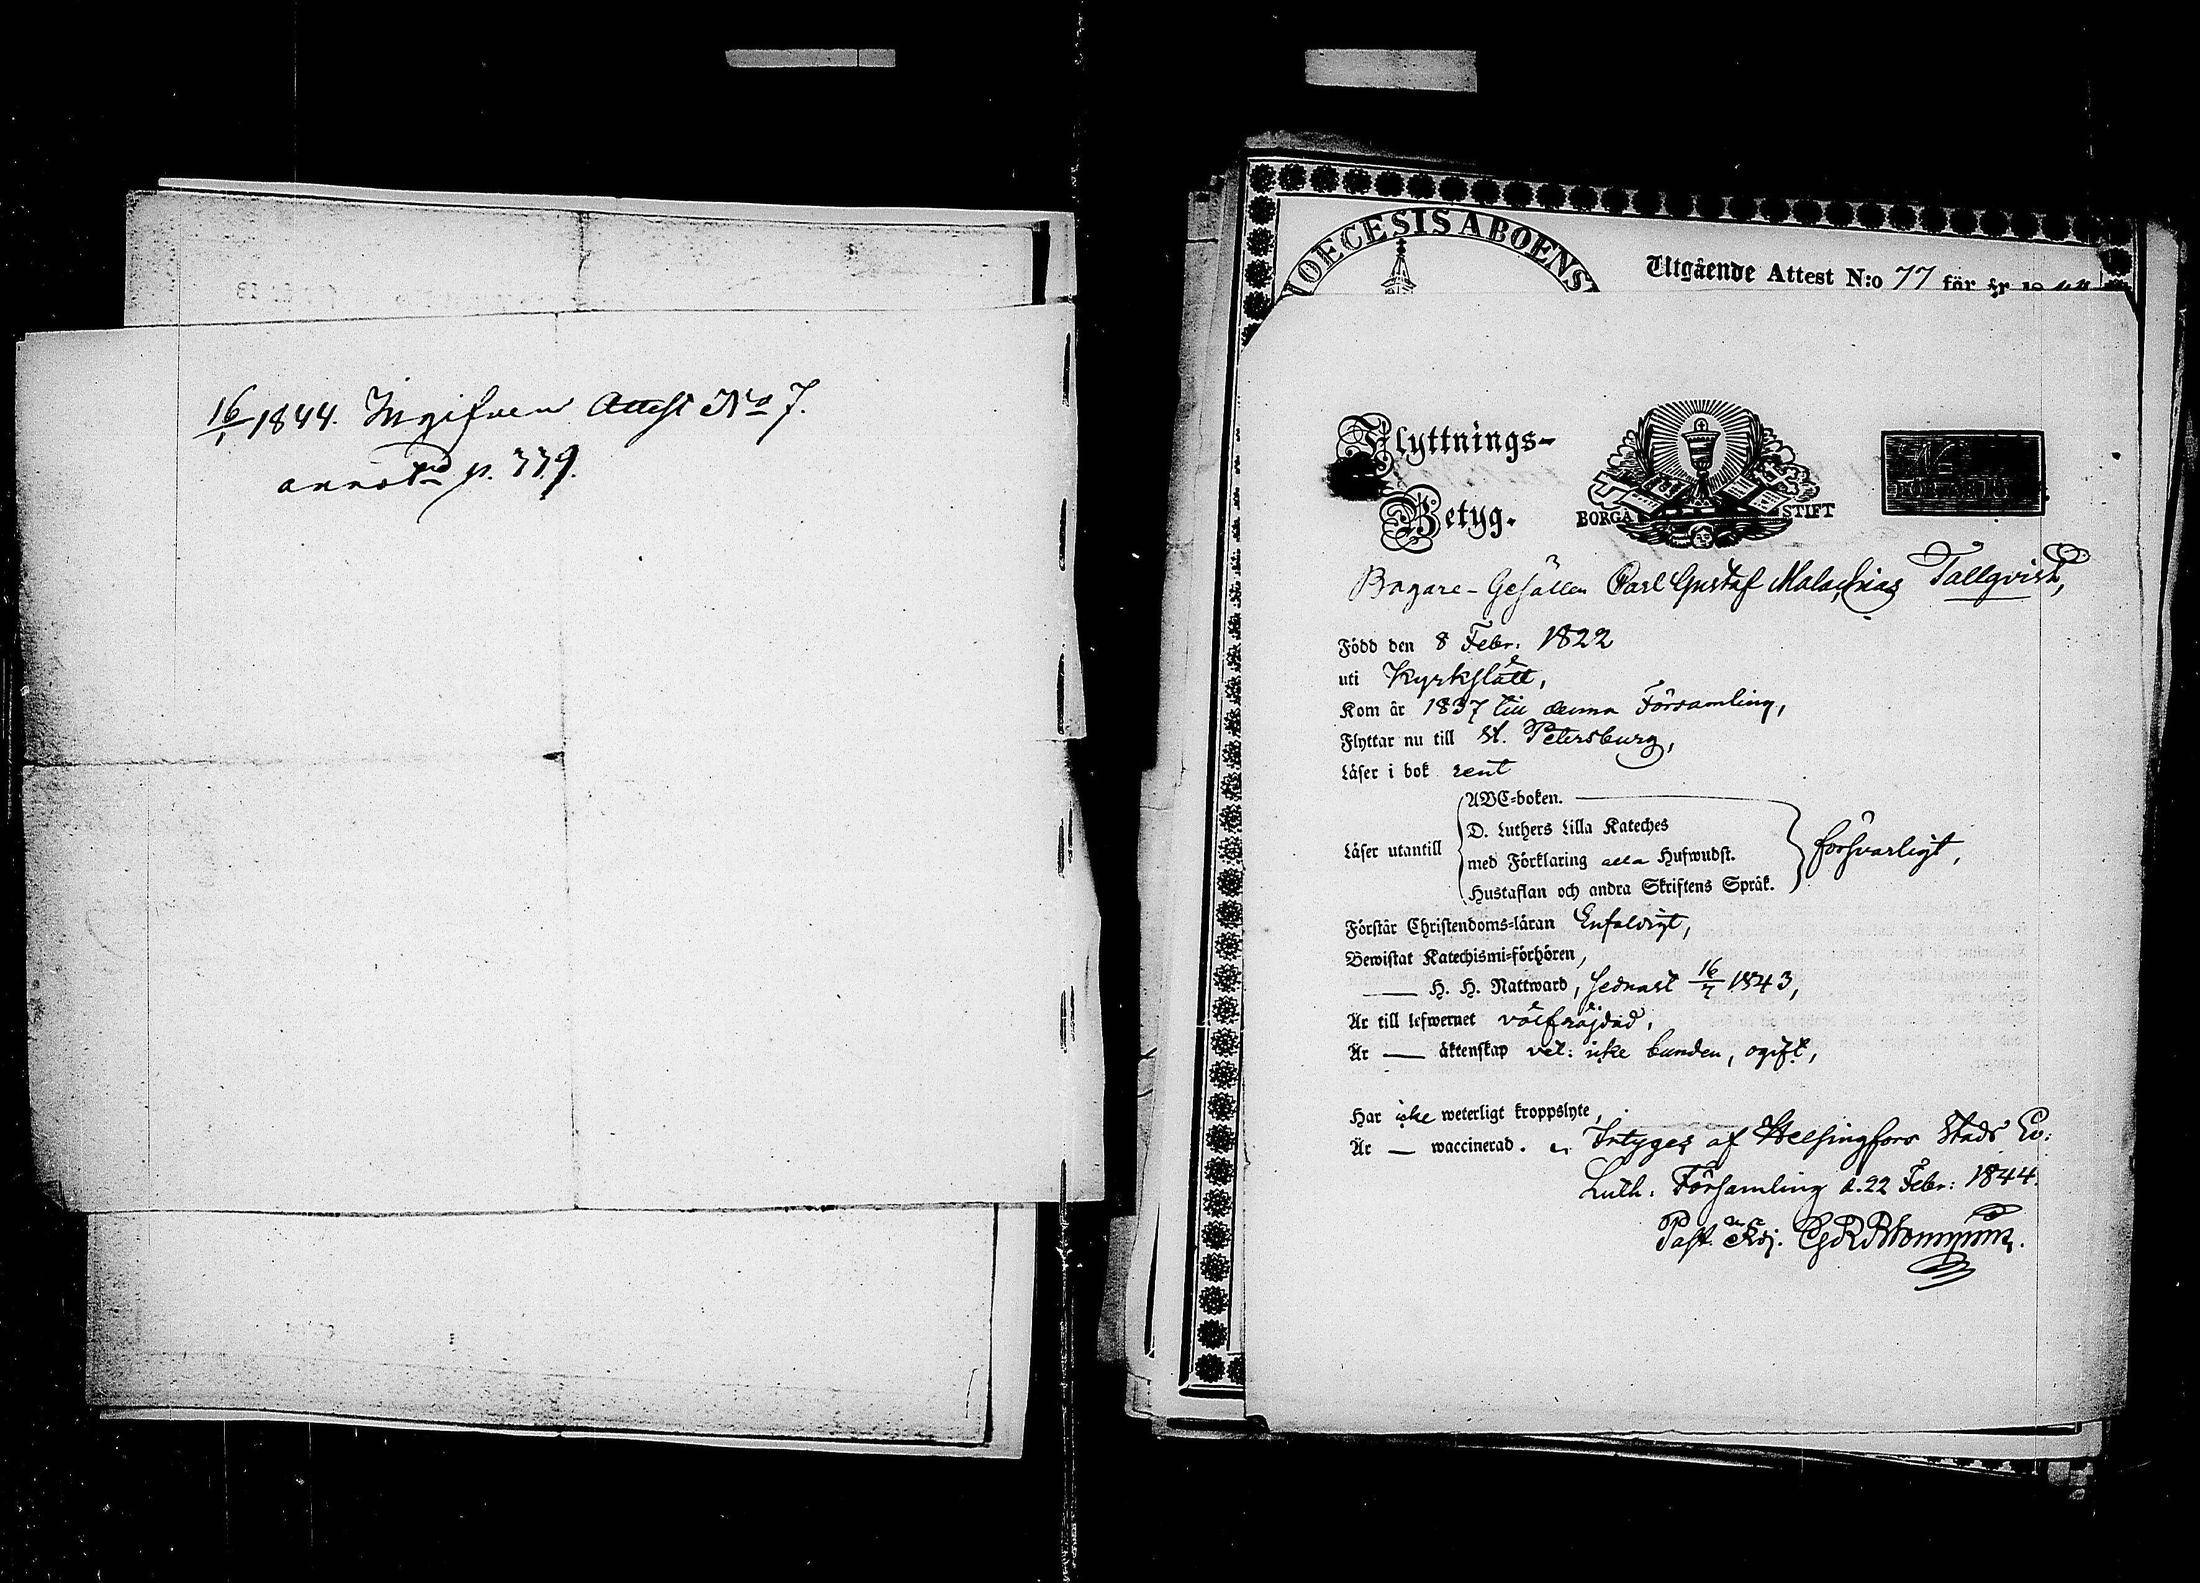 16/1 1844. Ingifven Attest No 7.
annotd p. 339.
DIOECESIS ABOENS
Utgående Attest N:o 77 för år 1844
Flyttnings-
Betyg.
BORGÅ STIFT
Bagare-Gesällen Carl Gustaf Malachias Tallqvist,
Född den 8 Febr. 1822
uti Kyrkslätt,
Kom år 1837 till denna Församling,
Flyttar nu till St. Petersburg,
Läser i bok rent
Läser utantill
ABC-boken.
D. Luthers Lilla Kateches
med Förklaring alla Hufwudst.
Hustaflan och andra Skriftens Språk.
försvarligt,
Förstår Christendoms-läran Enfaldigt,
Bewistat Katechismi-förhören,
— H. H. Nattward, sednast 16/7 1843,
Är till lefwernet välfräjdad,
Är — äktenskap vet: icke bunden, ogift,
Har icke weterligt kroppslyte,
Är — waccinerad. Intyges af Helsingfors Stads Ev:
Luth. Församling d. 22 Febr: 1844.
Past. Adj.